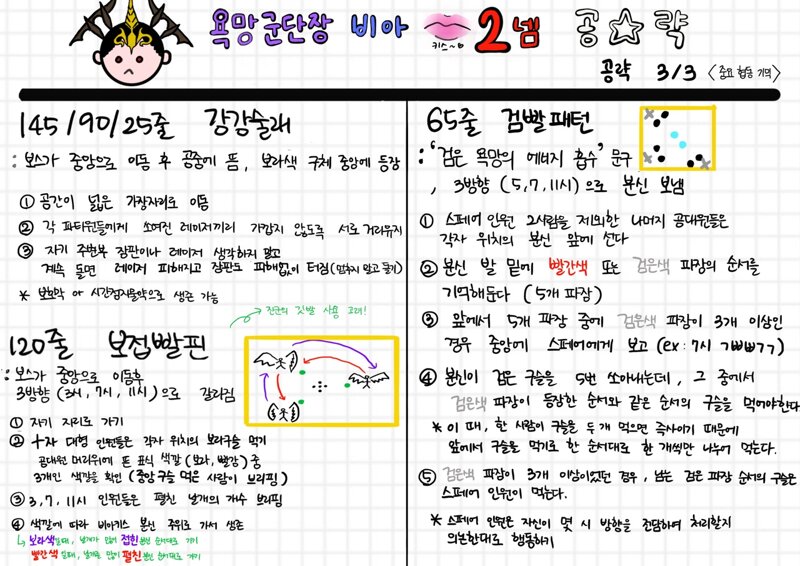 욕망군단장 비아키스~♡ 2넴 공☆략
공략 3/3 <중요 합동 기믹>
145/90/25줄 강강술래
: 보스가 중앙으로 이동 후 공중에 뜸, 보라색 구체 중앙에 등장
① 공간이 넓은 가장자리로 이동
② 각 파티원들에게 소여진 레이저끼리 가깝지 않도록 서로 거리유지
③ 자기 주변부 장판이나 레이저 생각하지 말고
계속 돌면 레이저 피해지고 장판도 피해없이 터짐(멈추지 않고 돌기)
* 보호막 or 시간정지물약으로 생존 가능
전군의 깃발 사용 고려!
120줄 보접빨핀
: 보스가 중앙으로 이동후
3방향 (3시, 7시, 11시)으로 갈라짐
① 자기 자리로 가기
② 십자 대형 인원들은 각자 위치의 보라구슬 먹기
공대원 머리위에 뜬 표식 색깔 (보라, 빨강) 중
3개인 색깔을 확인 (중앙구슬 먹은 사람이 브리핑)
③ 3, 7, 11시 인원들은 펼친 날개의 개수 브리핑
④ 색깔에 따라 비아키스 분신 주위로 가서 생존
↳ 보라색일때, 날개가 많이 접힌 분신 순서대로 가기
빨간색일때, 날개를 많이 펼친 분신 순서대로 가기
65줄 검빨패턴
: '검은 욕망의 에너지 흡수' 문구
, 3방향 (5, 7, 11시)으로 분신 보냄
① 스페어 인원 2사람을 제외한 나머지 공대원들은
각자 위치의 분신 앞에 선다
② 분신 발 밑에 빨간색 또는 검은색 파장의 순서를
기억해둔다 (5개 파장)
③ 앞에서 5개 파장 중에 검은색 파장이 3개 이상인
경우 중앙에 스페어에게 보고 (ex: 7시 ㄱㅃㅃㄱㄱ)
④ 분신이 검은 구슬을 5번 쏘아내는데, 그 중에서
검은색 파장이 등장한 순서와 같은 순서의 구슬을 먹어야한다
* 이 때, 한 사람이 구슬을 두 개 먹으면 즉사이기 때문에
앞에서 구슬을 먹기로 한 순서대로 한 개씩만 나누어 먹는다.
⑤ 검은색 파장이 3개 이상이었던 경우, 남는 검은 파장 순서의 구슬은
스페어 인원이 먹는다.
* 스페어 인원은 자신이 몇 시 방향을 전담하여 처리할지
의논한대로 행동하기